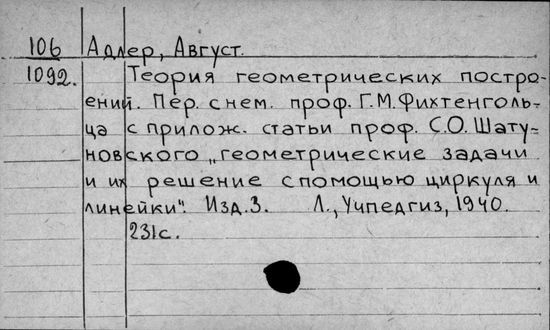 106 Адлер, Август.
1092. Теория геометрических постро-
ений. Пер. с нем. проф. Г.М. Фихтенголь-
ца с прилож. статьи проф. С.О. Шату-
новского „геометрические задачи
и их решение с помощью циркуля и
линейки". Изд. 3. Л., Учпедгиз, 1940.
231с.